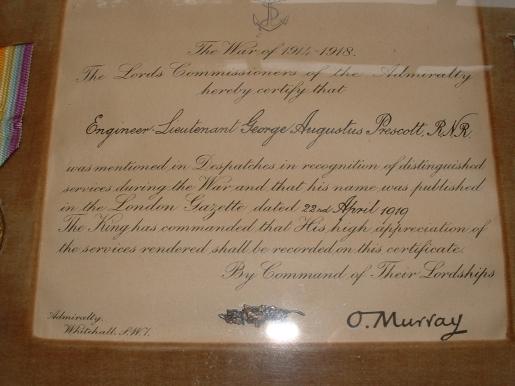 The War of 1914-1918.
The Lords Commissioners of the Admiralty
hereby certify that
Engineer-Lieutenant George Augustus Prescott, R.N.R.
was mentioned in Despatches in recognition of distinguished
services during the War and that his name was published
in the London Gazette dated 22nd April 1919
The King has commanded that His high appreciation of
the services rendered shall be recorded on this certificate.
By Command of Their Lordships
Admiralty.
Whitehall. S.W.1.
O. Murray